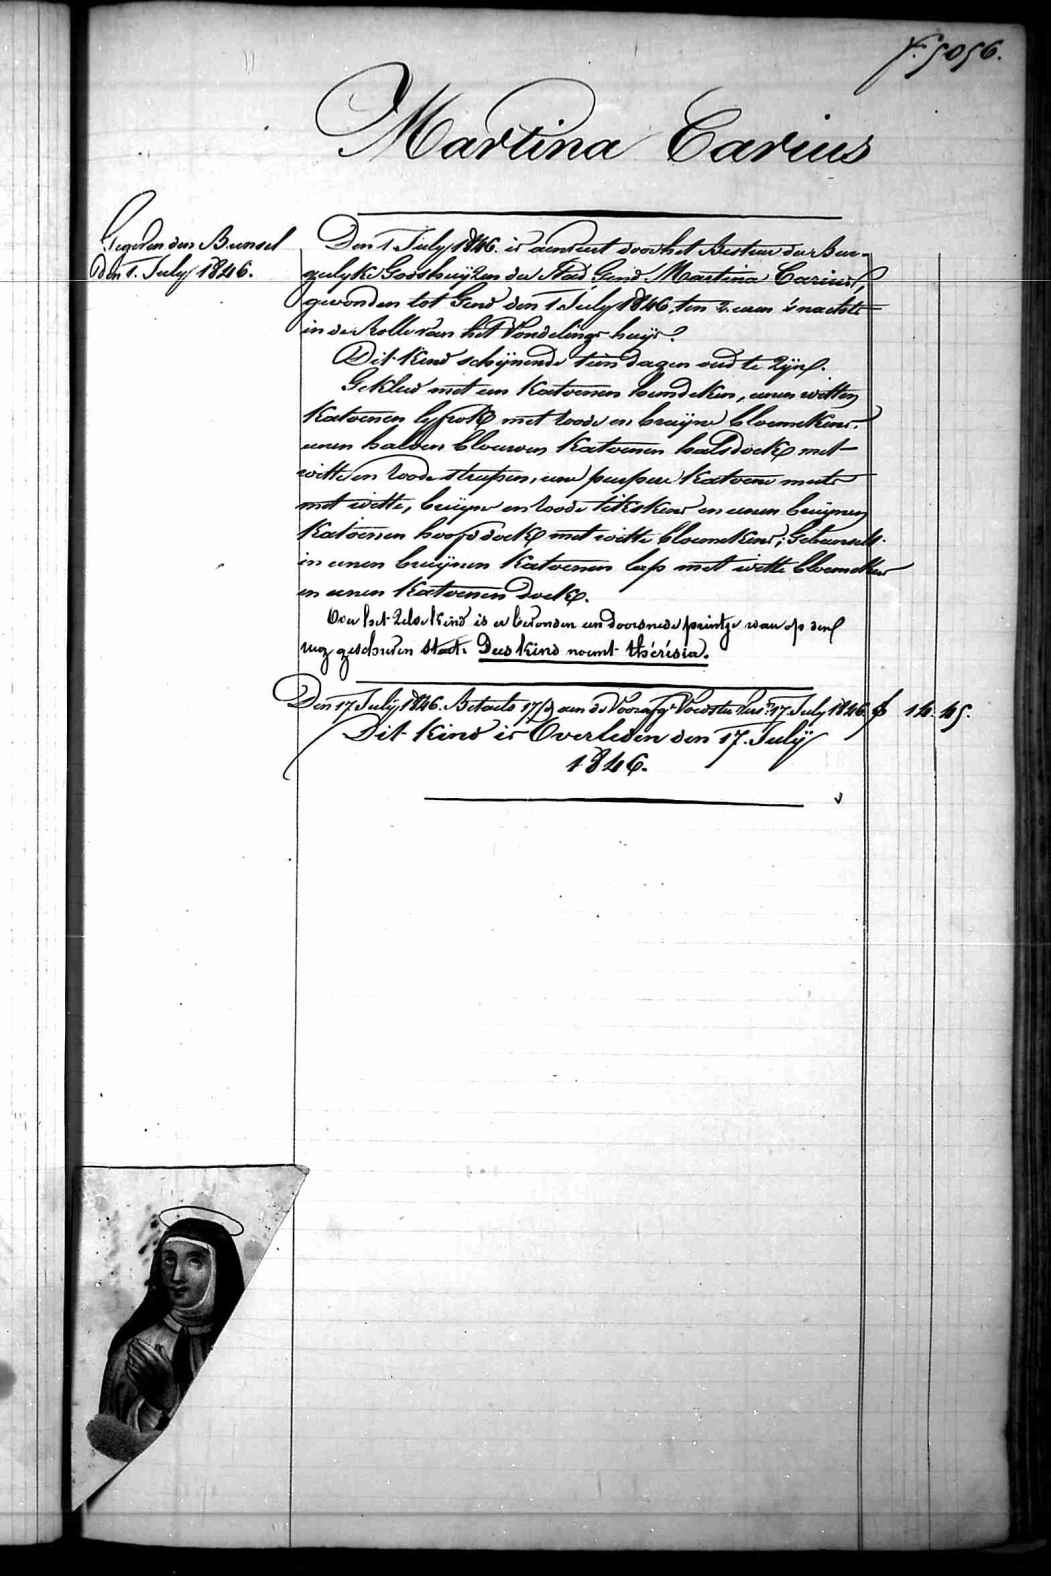 f. 5056.
Martina Carius
Gegeven den Bunsel
den 1. July 1846.
Den 1 July 1846. is aenveert door het Bestuer der Bur-
gelyke Godshuyzen der Stad Gend Martina Carius,
gevonden tot Gend den 1 July 1846, ten 2 euren 's nachts
in de Rolle van het Vondelings huys?
Dit Kind schijnende tien dagen oud te zijn.
Gekleed met een Katoenen hemdeken, eenen witten
Katoenen lyfrok met roode en bruyne bloemekens,
eenen halven blouwen Katoenen halsdoek met
witte en roode streepen, eene purpere Katoene muts
met witte, bruyne en roode titskens en eenen bruynen
Katoenen hoofddoek met witte bloemekens; Gebunselt
in eenen bruynen Katoenen lap met witte bloemekens
en eenen Katoenen doek.
Over het zelve kind is er bevonden een doorsnede printje waer op den
rug geschreven staet: Dees kind noemt thérésia.
Den 17 July 1846. Betaelt 17/9 aen de Voorzorg Voedster 17 July 1846. f 14. 45.
Dit kind is Overleden den 17. July
1846.